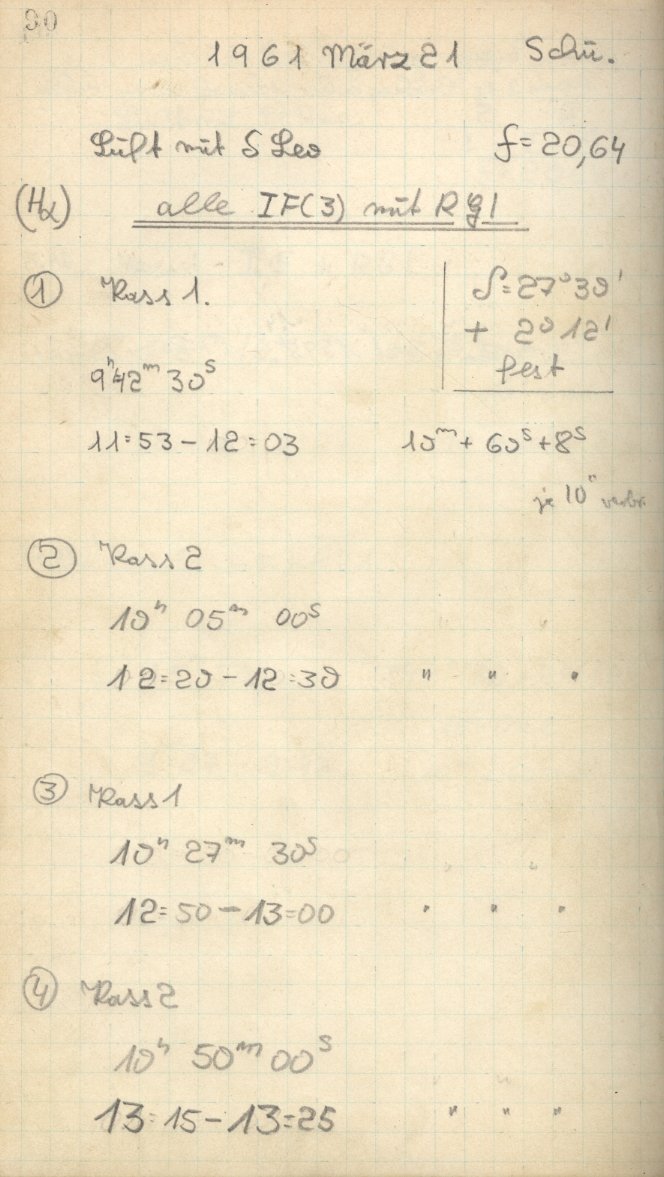 90
1961 März 21 Schü.
Luft mit δ Leo f = 20,64
(Hα) alle IF(3) mit RG1
① Kass 1. δ = 27° 30'
+ 2° 12'
fest
9ʰ 42ᵐ 30ˢ
11:53 – 12:03 10ᵐ + 60ˢ + 8ˢ
je 10"
② Kass 2
10ʰ 05ᵐ 00ˢ
12:20 – 12:30 " " "
③ Kass 1
10ʰ 27ᵐ 30ˢ
12:50 – 13:00 " " "
④ Kass 2
10ʰ 50ᵐ 00ˢ
13:15 – 13:25 " " "